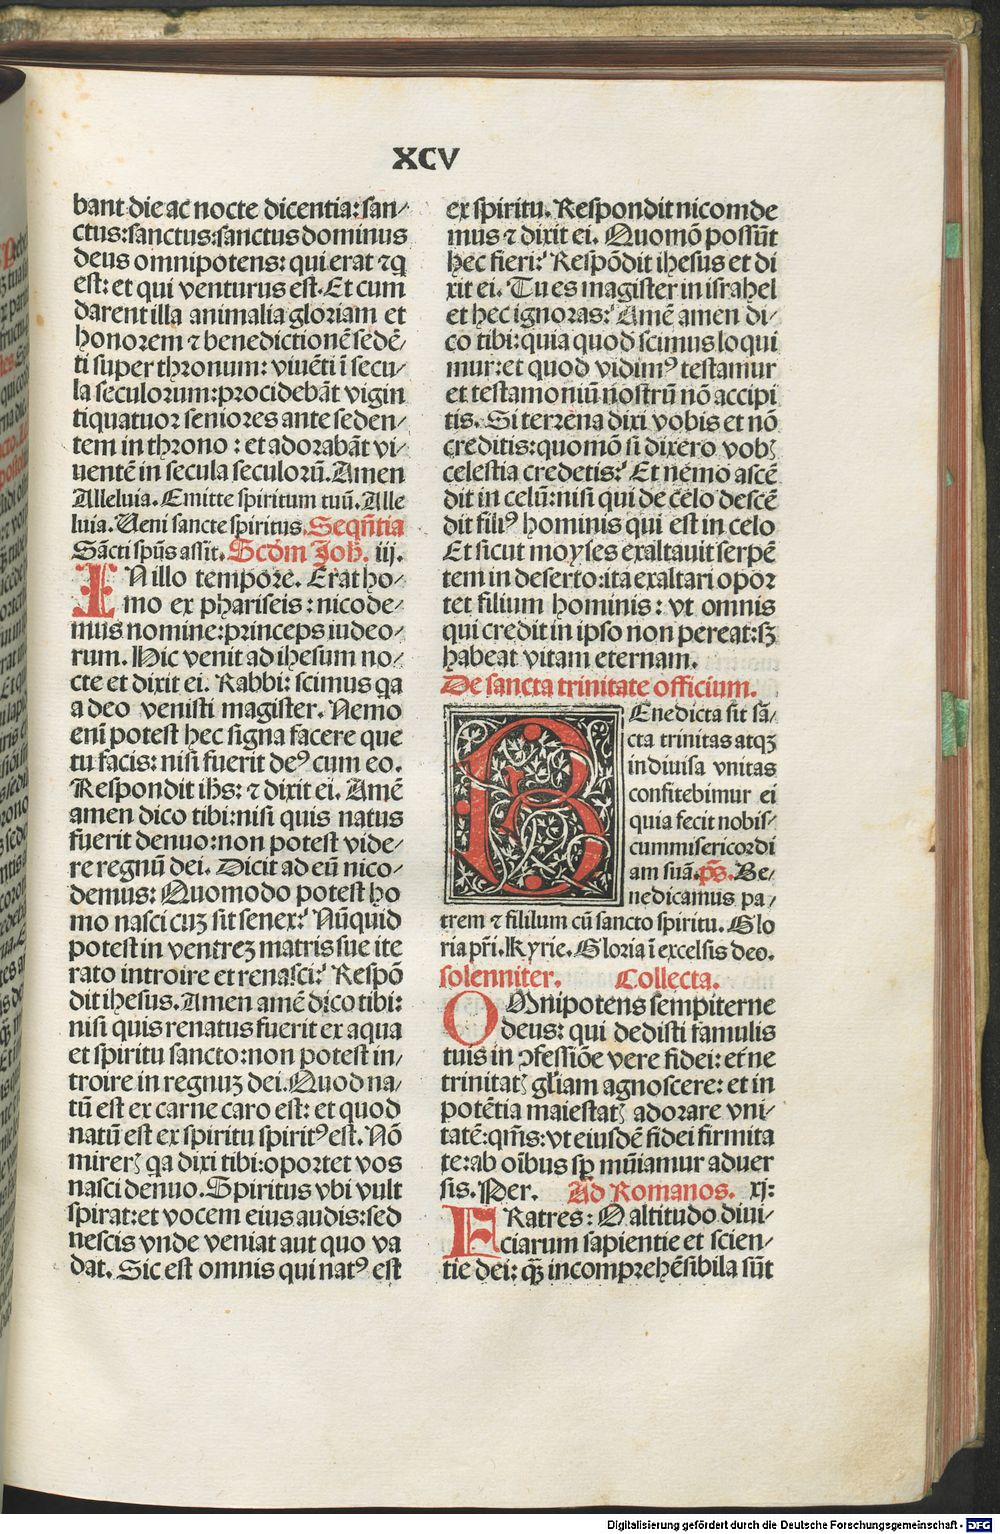 XCV
bant die ac nocte dicentia: san⸗
ctus: sanctus: sanctus dominus
deus omnipotens: qui erat ⁊ q
est: et qui venturus est. Et cum
darent illa animalia gloriam et
honorem ⁊ benedictionē sedē⸗
ti super thronum: viuēti ī secu⸗
la seculorum: procidebāt vigin
tiquatuor seniores ante seden⸗
tem in throno: et adorabāt vi⸗
uentē in secula seculorū. Amen
Alleluia. Emitte spiritum tuū. Alle
luia. Ueni sancte spiritus. Seqn̄tia
Sācti spūs assit. Scd̄m Joh. iij.
IN illo tempore. Erat ho⸗
mo ex phariseis: nicode⸗
mus nomine: princeps iudeo⸗
rum. Hic venit ad ihesum no⸗
cte et dixit ei. Rabbi: scimus qa
a deo venisti magister. Nemo
enī potest hec signa facere que
tu facis: nisi fuerit deꝰ cum eo.
Respondit ihs: ⁊ dixit ei. Amē
amen dico tibi: nisi quis natus
fuerit denuo: non potest vide⸗
re regnū dei. Dicit ad eū nico⸗
demus: Quomodo potest ho
mo nasci cuꝫ sit senex? Nūquid
potest in ventreꝫ matris sue ite
rato introire et renasci? Respō
dit ihesus. Amen amē dico tibi:
nisi quis renatus fuerit ex aqua
et spiritu sancto: non potest in⸗
troire in regnuꝫ dei. Quod na⸗
tū est ex carne caro est: et quod
natū est ex spiritu spiritꝰ est. Nō
mirerꝭ qa dixi tibi: oportet vos
nasci denuo. Spiritus vbi vult
spirat: et vocem eius audis: sed
nescis vnde veniat aut quo va
dat. Sic est omnis qui natꝰ est
ex spiritu. Respondit nicomde
mus ⁊ dixit ei. Quomō possūt
hec fieri? Respōdit ihesus et di
xit ei. Tu es magister in israhel
et hec ignoras? Amē amen di⸗
co tibi: quia quod scimus loqui
mur: et quod vidimꝰ testamur
et testamoniū nostrū nō accipi
tis. Si terrena dixi vobis et nō
creditis: quomō si dixero vobꝭ
celestia credetis? Et nemo ascē
dit in celū: nisi qui de celo descē
dit filiꝰ hominis qui est in celo
Et sicut moyses exaltauit serpē
tem in deserto: ita exaltari opor
tet filium hominis: vt omnis
qui credit in ipso non pereat: sꝫ
habeat vitam eternam.
De sancta trinitate officium.
BEnedicta sit sā⸗
cta trinitas atqꝫ
indiuisa vnitas
confitebimur ei
quia fecit nobis⸗
cum misericordi
am suā. p̄s. Be⸗
nedicamus pa⸗
trem ⁊ fililum cū sancto spiritu. Glo
ria pr̄i. Kyrie. Gloria ī excelsis deo.
solenniter. Collecta.
OMnipotens sempiterne
deus: qui dedisti famulis
tuis in ꝯfessiōe vere fidei: et'ne
trinitatꝭ gl'iam agnoscere: et in
potētia maiestatꝭ adorare vni⸗
tatē: qm̄s: vt eiusdē fidei firmita
te: ab oībus sꝑ mūiamur aduer
sis. Per. Ad Romanos. xj:
FRatres: O altitudo diui⸗
ciarum sapientie et scien⸗
tie dei: qꝫ incomprehēsibila sūt
Digitalisierung gefördert durch die Deutsche Forschungsgemeinschaft - DFG